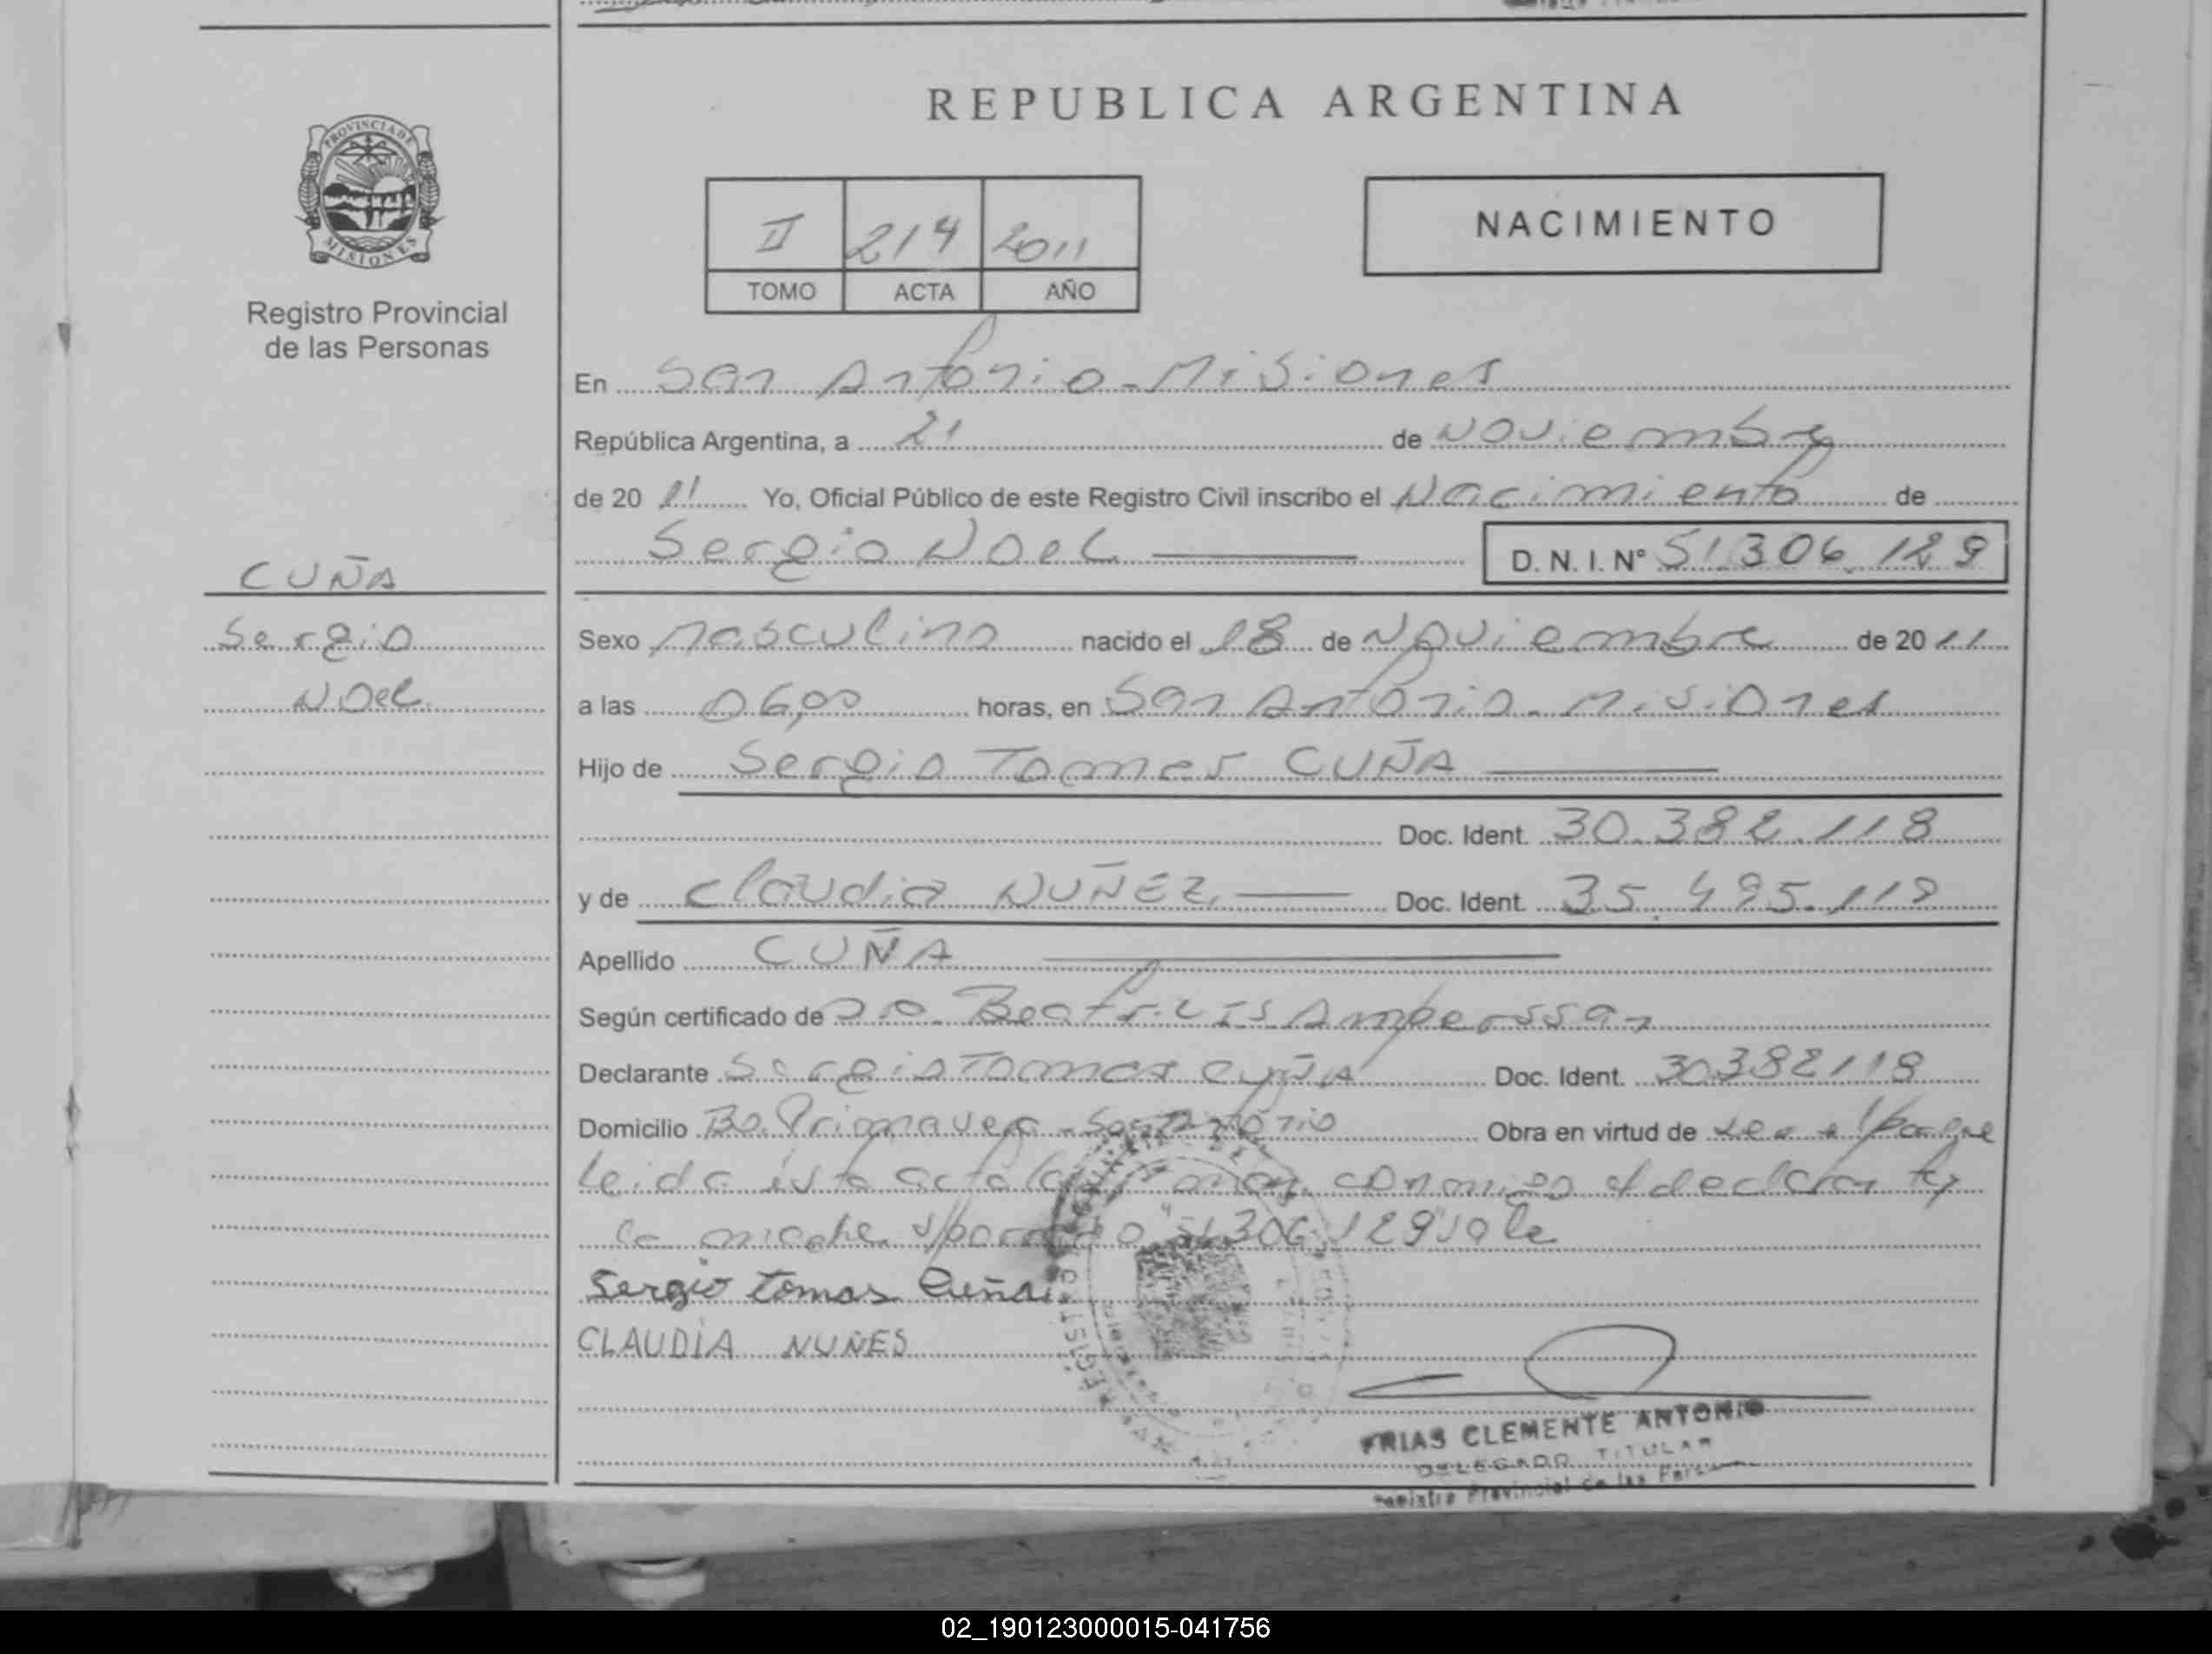 REPUBLICA ARGENTINA
PROVINCIA DE
MISIONES
Registro Provincial
de las Personas
II 214 2011
TOMO ACTA AÑO
NACIMIENTO
En San Antonio - Misiones
República Argentina, a 21 de Noviembre
de 20 11 Yo, Oficial Público de este Registro Civil inscribo el Nacimiento de
Sergio Noel D. N. I. Nº 51.306.129
CUÑA
Sergio
Noel
Sexo Masculino nacido el 18 de Noviembre de 20 11
a las 06,00 horas, en San Antonio - Misiones
Hijo de Sergio Tomas CUÑA
Doc. Ident. 30.382.118
y de Claudia NUÑEZ Doc. Ident. 35.495.119
Apellido CUÑA
Según certificado de Beatriz
Declarante Sergio Tomas CUÑA Doc. Ident. 30382118
Domicilio Bo. Primavera - San Antonio Obra en virtud de
Leida esta acta la conmigo el declarante y
la madre s/borrado "51.306.129" vale
Sergio tomas Cuña
CLAUDIA NUÑES
FRIAS CLEMENTE ANTONIO
DELEGADO TITULAR
Registro Provincial de las Pers
02_190123000015-041756